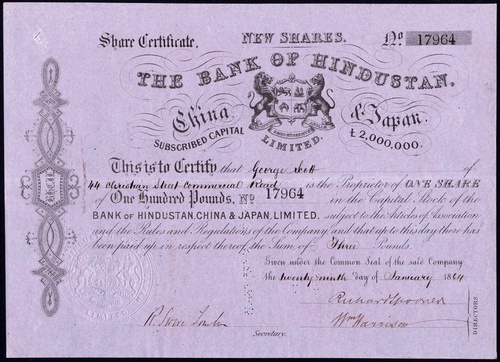 NEW SHARES.
Share Certificate. No 17964
THE BANK OF HINDUSTAN,
China & Japan.
SUBSCRIBED CAPITAL LIMITED. £2,000,000.
This is to Certify that George Scott of
44 Christian Street Commercial Road is the Proprietor of ONE SHARE
of One Hundred Pounds, No 17964 in the Capital Stock of the
BANK OF HINDUSTAN, CHINA & JAPAN, LIMITED. subject to the Articles of Association
and the Rules and Regulations of the Company and that up to this day there has
been paid up in respect thereof the Sum of Three Pounds.
Given under the Common Seal of the said Company
the twenty ninth day of January 1864
Richard Spooner
Wm Harrison
DIRECTORS
Secretary.